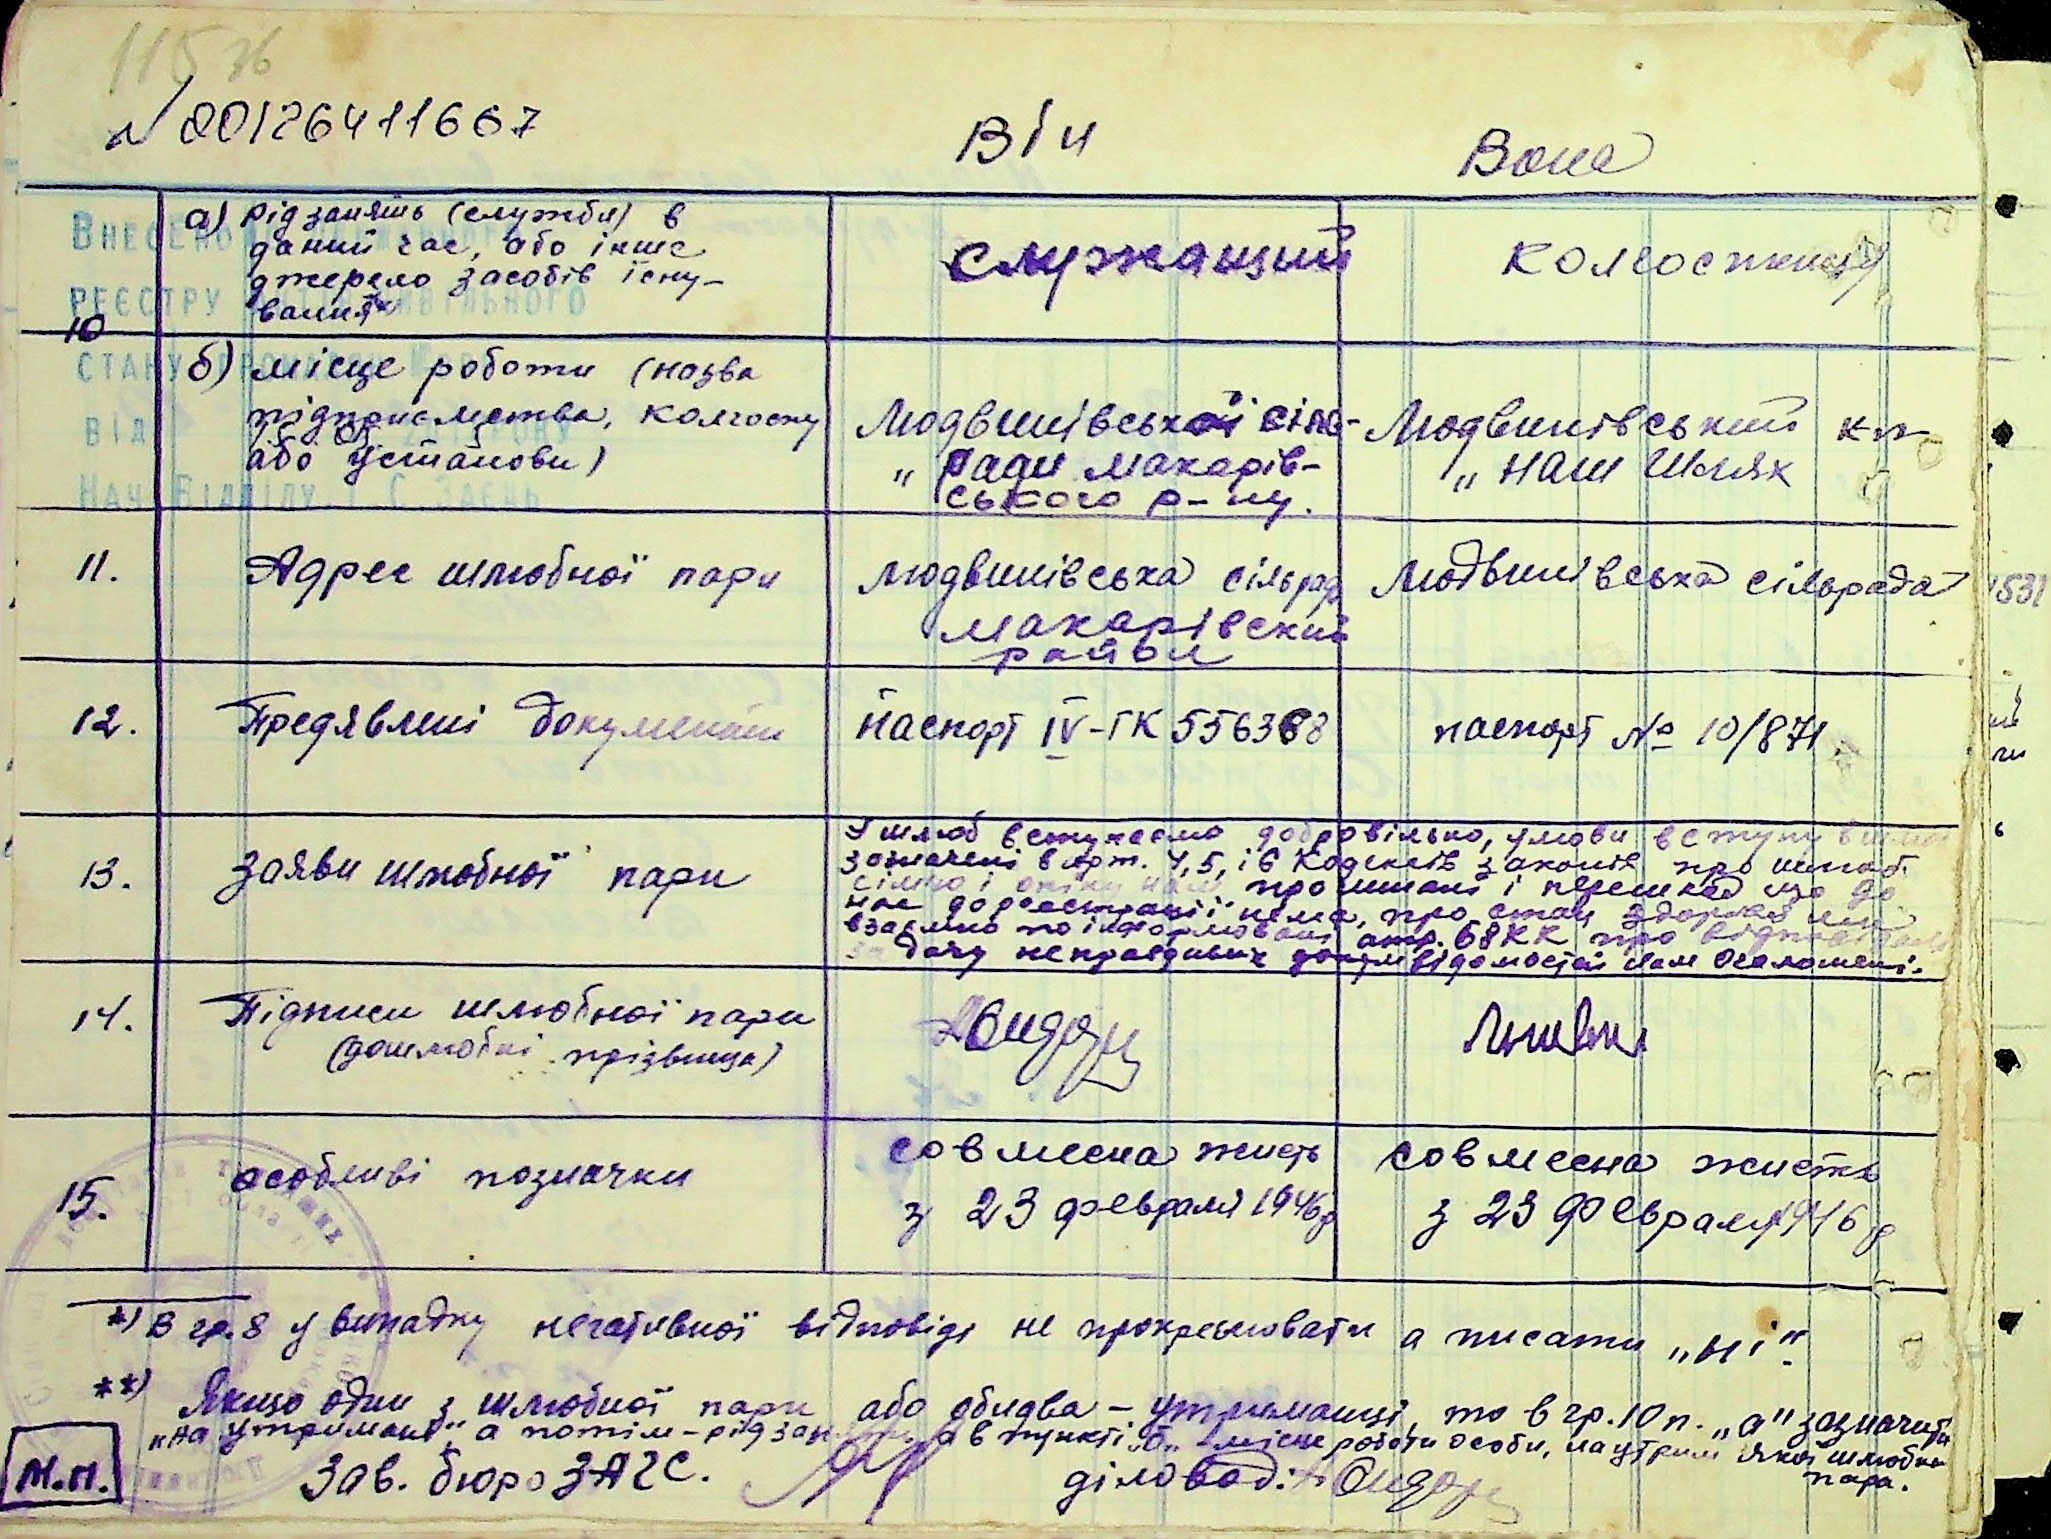 115 зв
N 00126411667
Він Вона
а) рід занять (служби) в
даний час, або інше
джерело засобів існу-
вання**
служащий
колгоспниця
ВНЕСЕНО
РЕЄСТРУ
СТАНУ
ВІД
НАЧ. ВІДДІЛУ І.С. ЗАЄЦЬ
10
б) місце роботи (назва
підприємства, колгоспу
або установи)
Людвинівської сіль-
" ради Макарів-
ського р-ну.
Людвинівський к-п
" наш шлях
11. Адрес шлюбної пари
Людвинівська сільрада
Макарівский
район
Людвинівська сільрада
12. Предявлені документи
паспорт IV-ГК 556388
паспорт № 10/871
13. Заяви шлюбної пари
У шлюб вступаємо добровільно, умови вступу в шлюб
зазначені в арт. 4, 5, і 6 Кодексів законів про шлюб
сімю і опіку нам прочитані і перешкод що до
нас до реєстрації нема, про стан здоровя ми
взаємно поінформовані, арт. 68 КК про відповідальн
за дачу неправдивих відомостей нам оголошені.
14. Підписи шлюбної пари
(дошлюбні прізвища)
15. особливі позначки
совмесна жисть
з 23 февраля 1946 р
совмесна жисть
з 23 февраля 1946 р
*) В гр. 8 у випадку негативної відповіді не прокреслювати а писати „ні“.
**) Якщо один з шлюбної пари або обидва – утриманці, то в гр. 10 п. „а“ зазначити
„на утриманні“ а потім – рід занять, а в пункті „б“ – місце роботи особи, на утрим якої шлюбна
пара.
М.П. Зав. бюро ЗАГС. діловод: